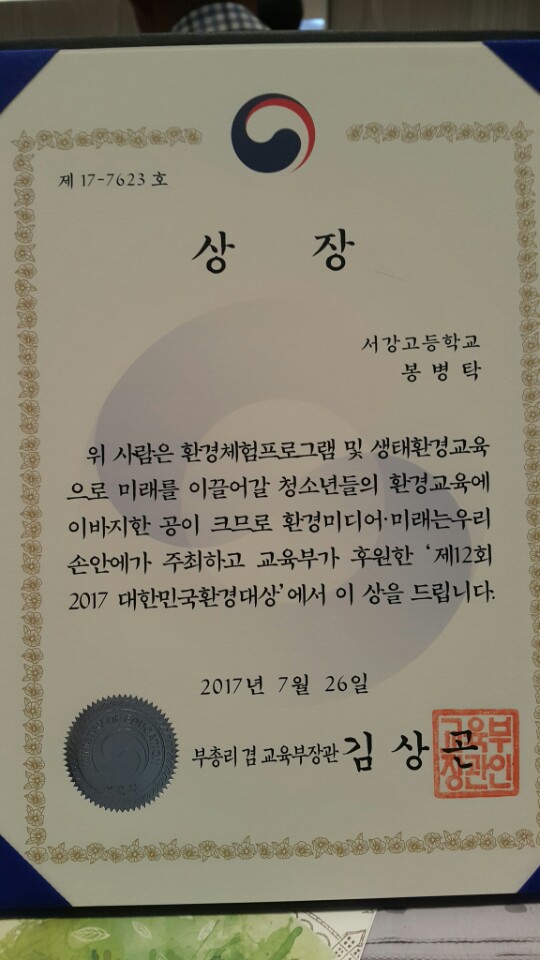 제 17-7623 호
상 장
서강고등학교
봉 병 탁
위 사람은 환경체험프로그램 및 생태환경교육
으로 미래를 이끌어갈 청소년들의 환경교육에
이바지한 공이 크므로 환경미디어·미래는우리
손안에가 주최하고 교육부가 후원한 '제12회
2017 대한민국환경대상'에서 이 상을 드립니다.
2017년 7월 26일
부총리 겸 교육부장관 김 상 곤
교육부
장관인